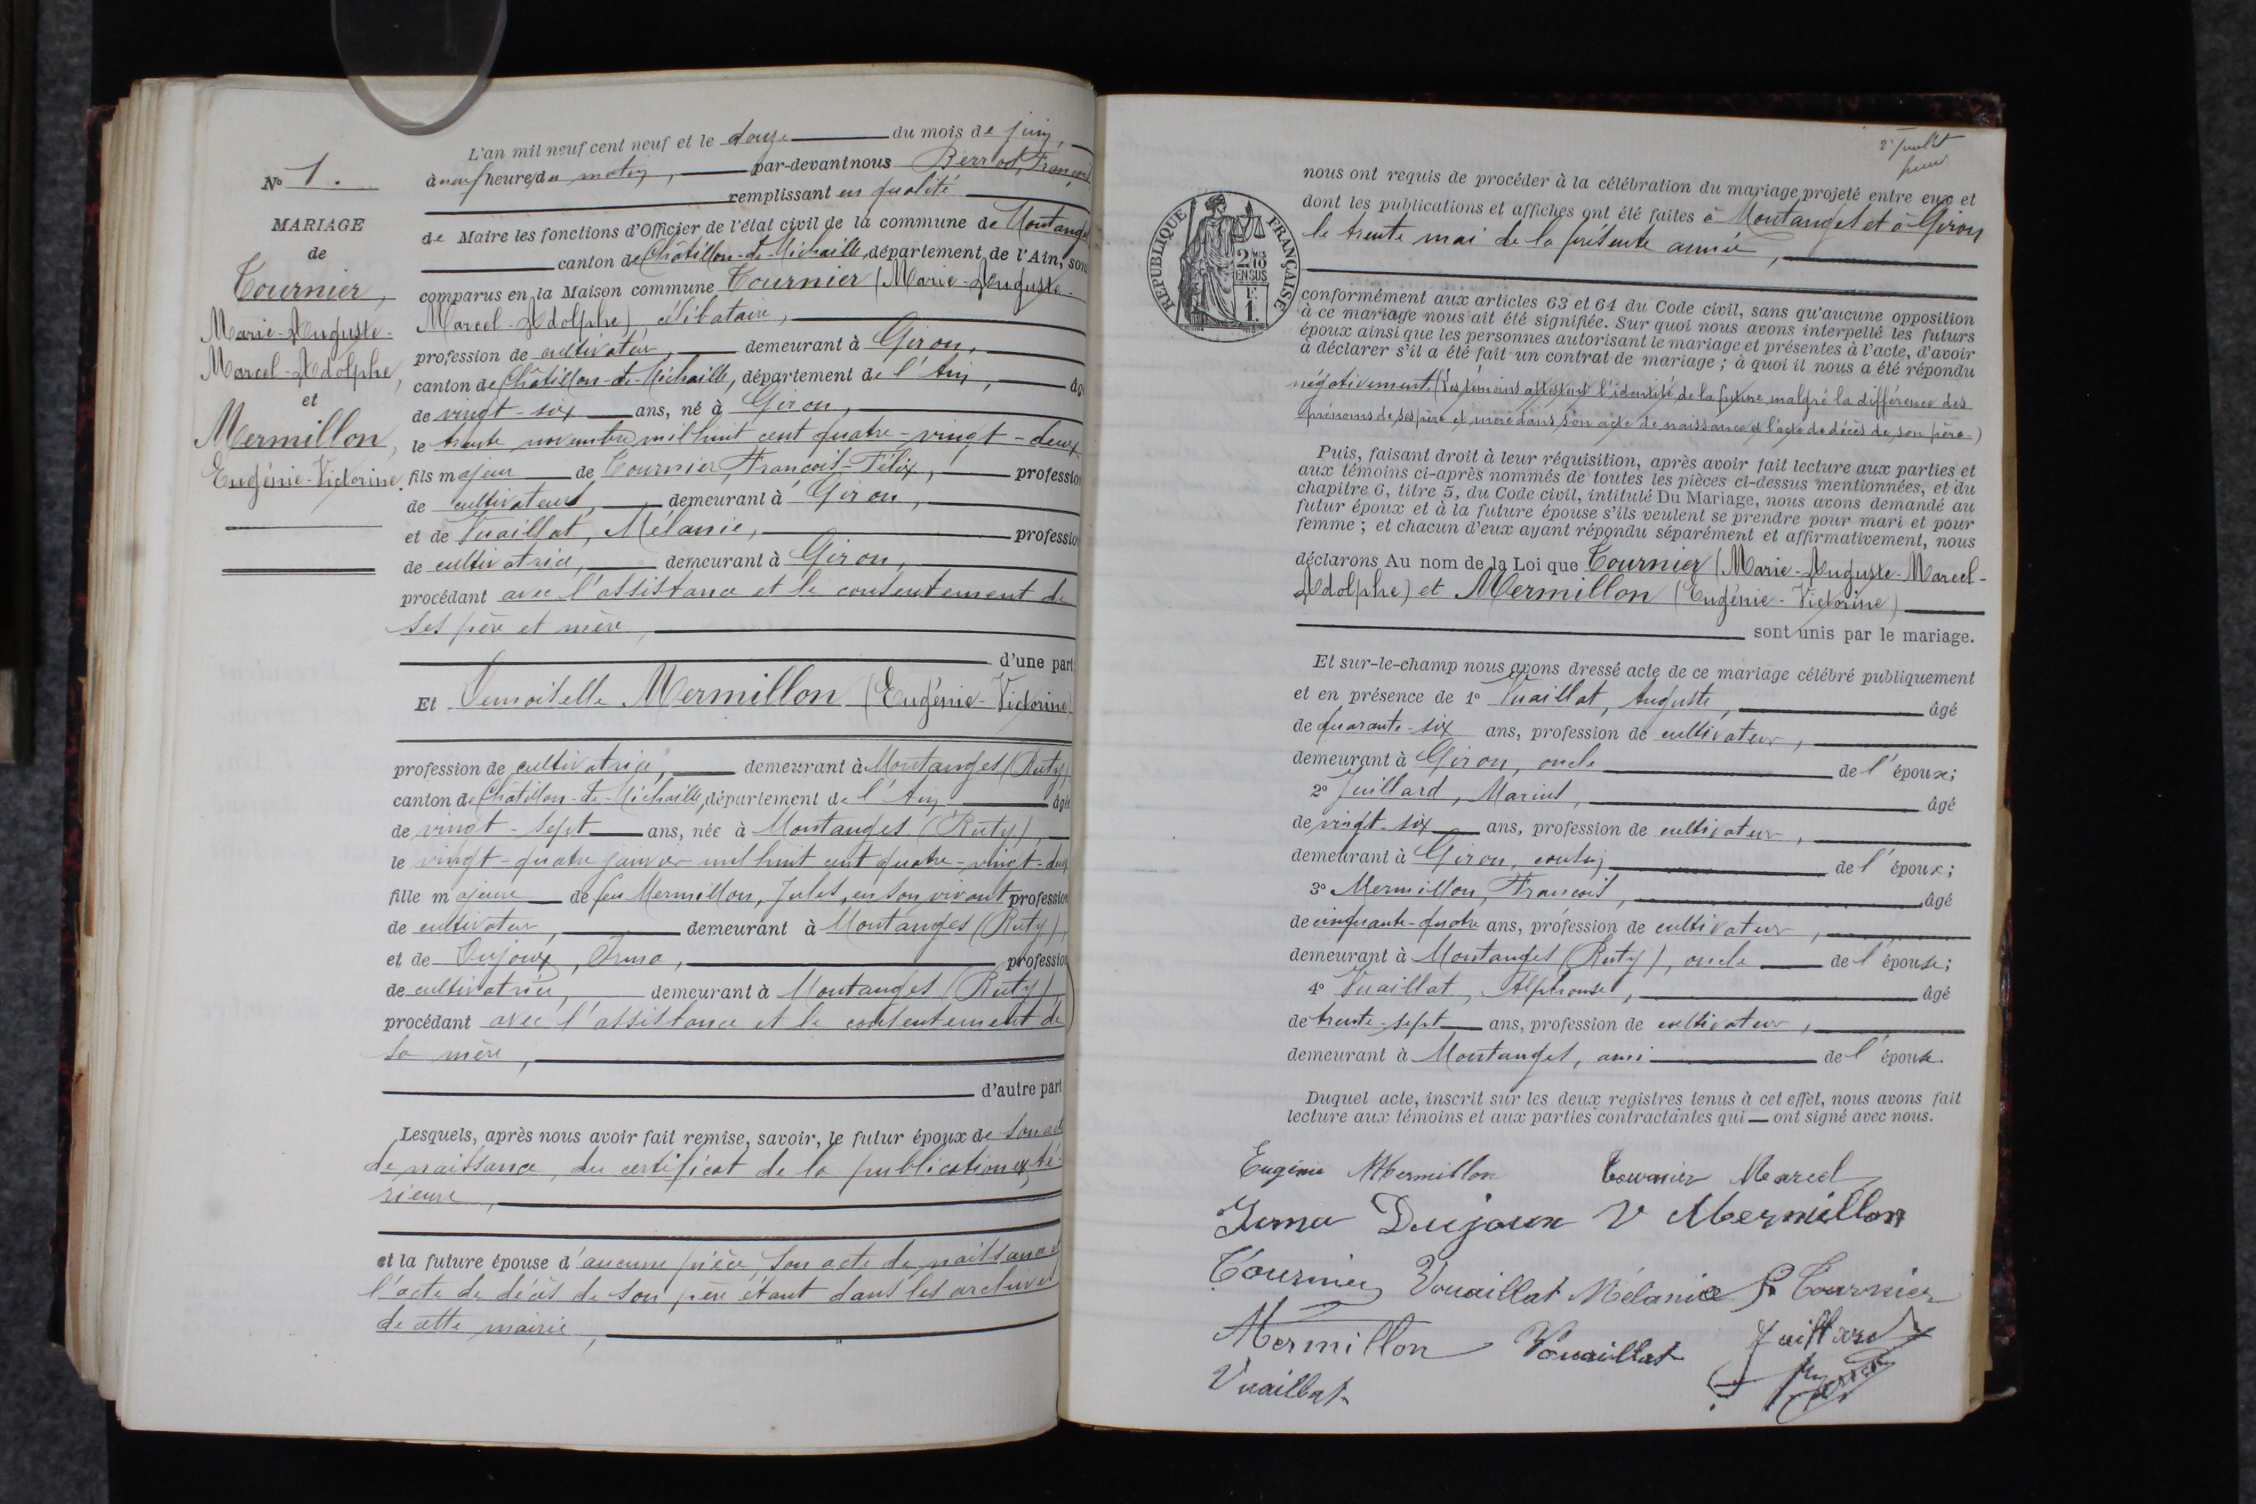 N° 1.
MARIAGE
de
Tournier,
Marie-Auguste-
Marcel-Adolphe,
et
Mermillon,
Eugénie-Victorine.
L'an mil neuf cent neuf et le douze du mois de juin,
à neuf heures du matin, par-devant nous Berrod, François
remplissant en qualité
de Maire les fonctions d'Officier de l'état civil de la commune de Montanges
canton de Châtillon-de-Michaille, département de l'Ain, sont
comparus en la Maison commune Tournier (Marie-Auguste-
Marcel-Adolphe), célibataire,
profession de cultivateur, demeurant à Giron,
canton de Châtillon-de-Michaille, département de l'Ain, âgé
de vingt-six ans, né à Giron,
le trente novembre mil huit cent quatre-vingt-deux
fils majeur de Tournier, François-Félix, profession
de cultivateur, demeurant à Giron,
et de Vuaillat, Mélanie, profession
de cultivatrice, demeurant à Giron,
procédant avec l'assistance et le consentement de
ses père et mère,
d'une part;
Et Demoiselle Mermillon (Eugénie-Victorine)
profession de cultivatrice, demeurant à Montanges (Ruty)
canton de Châtillon-de-Michaille, département de l'Ain âgée
de vingt-sept ans, née à Montanges (Ruty),
le vingt-quatre janvier mil huit cent quatre-vingt-deux
fille majeure de feu Mermillon, Jules, en son vivant profession
de cultivateur, demeurant à Montanges (Ruty),
et de Dujoux, Irma, profession
de cultivatrice, demeurant à Montanges (Ruty),
procédant avec l'assistance et le consentement de
sa mère,
d'autre part
Lesquels, après nous avoir fait remise, savoir, le futur époux de son acte
de naissance, du certificat de la publication exté-
rieure,
et la future épouse d'aucune pièce, son acte de naissance et
l'acte de décès de son père étant dans les archives
de cette mairie,
2e Feuillet
REPUBLIQUE FRANÇAISE
2/10 EN SUS
F. 1.
nous ont requis de procéder à la célébration du mariage projeté entre eux et
dont les publications et affiches ont été faites à Montanges et à Giron
le trente mai de la présente année,
conformément aux articles 63 et 64 du Code civil, sans qu'aucune opposition
à ce mariage nous ait été signifiée. Sur quoi nous avons interpellé les futurs
époux ainsi que les personnes autorisant le mariage et présentes à l'acte, d'avoir
à déclarer s'il a été fait un contrat de mariage; à quoi il nous a été répondu
négativement. (Les témoins attestent l'identité de la future malgré la différence des
prénoms de ses père et mère dans son acte de naissance et l'acte de décès de son père.)
Puis, faisant droit à leur réquisition, après avoir fait lecture aux parties et
aux témoins ci-après nommés de toutes les pièces ci-dessus mentionnées, et du
chapitre 6, titre 5, du Code civil, intitulé Du Mariage, nous avons demandé au
futur époux et à la future épouse s'ils veulent se prendre pour mari et pour
femme; et chacun d'eux ayant répondu séparément et affirmativement, nous
déclarons Au nom de la Loi que Tournier (Marie-Auguste-Marcel-
Adolphe) et Mermillon (Eugénie-Victorine)
sont unis par le mariage.
Et sur-le-champ nous avons dressé acte de ce mariage célébré publiquement
et en présence de 1° Vuaillat, Auguste, âgé
de quarante-six ans, profession de cultivateur,
demeurant à Giron, oncle de l'époux;
2° Juillard, Marius, âgé
de vingt-six ans, profession de cultivateur,
demeurant à Giron, cousin de l'époux;
3° Mermillon, François, âgé
de cinquante-quatre ans, profession de cultivateur,
demeurant à Montanges (Ruty), oncle de l'épouse;
4° Vuaillat, Alphonse, âgé
de trente-sept ans, profession de cultivateur,
demeurant à Montanges, ami de l'épouse.
Duquel acte, inscrit sur les deux registres tenus à cet effet, nous avons fait
lecture aux témoins et aux parties contractantes qui ont signé avec nous.
Eugénie Mermillon Tournier Marcel
Irma Dujoux V Mermillon
Tournier Vouaillat Mélanie F. Tournier
Mermillon Vouaillat Juillard
Vuaillat